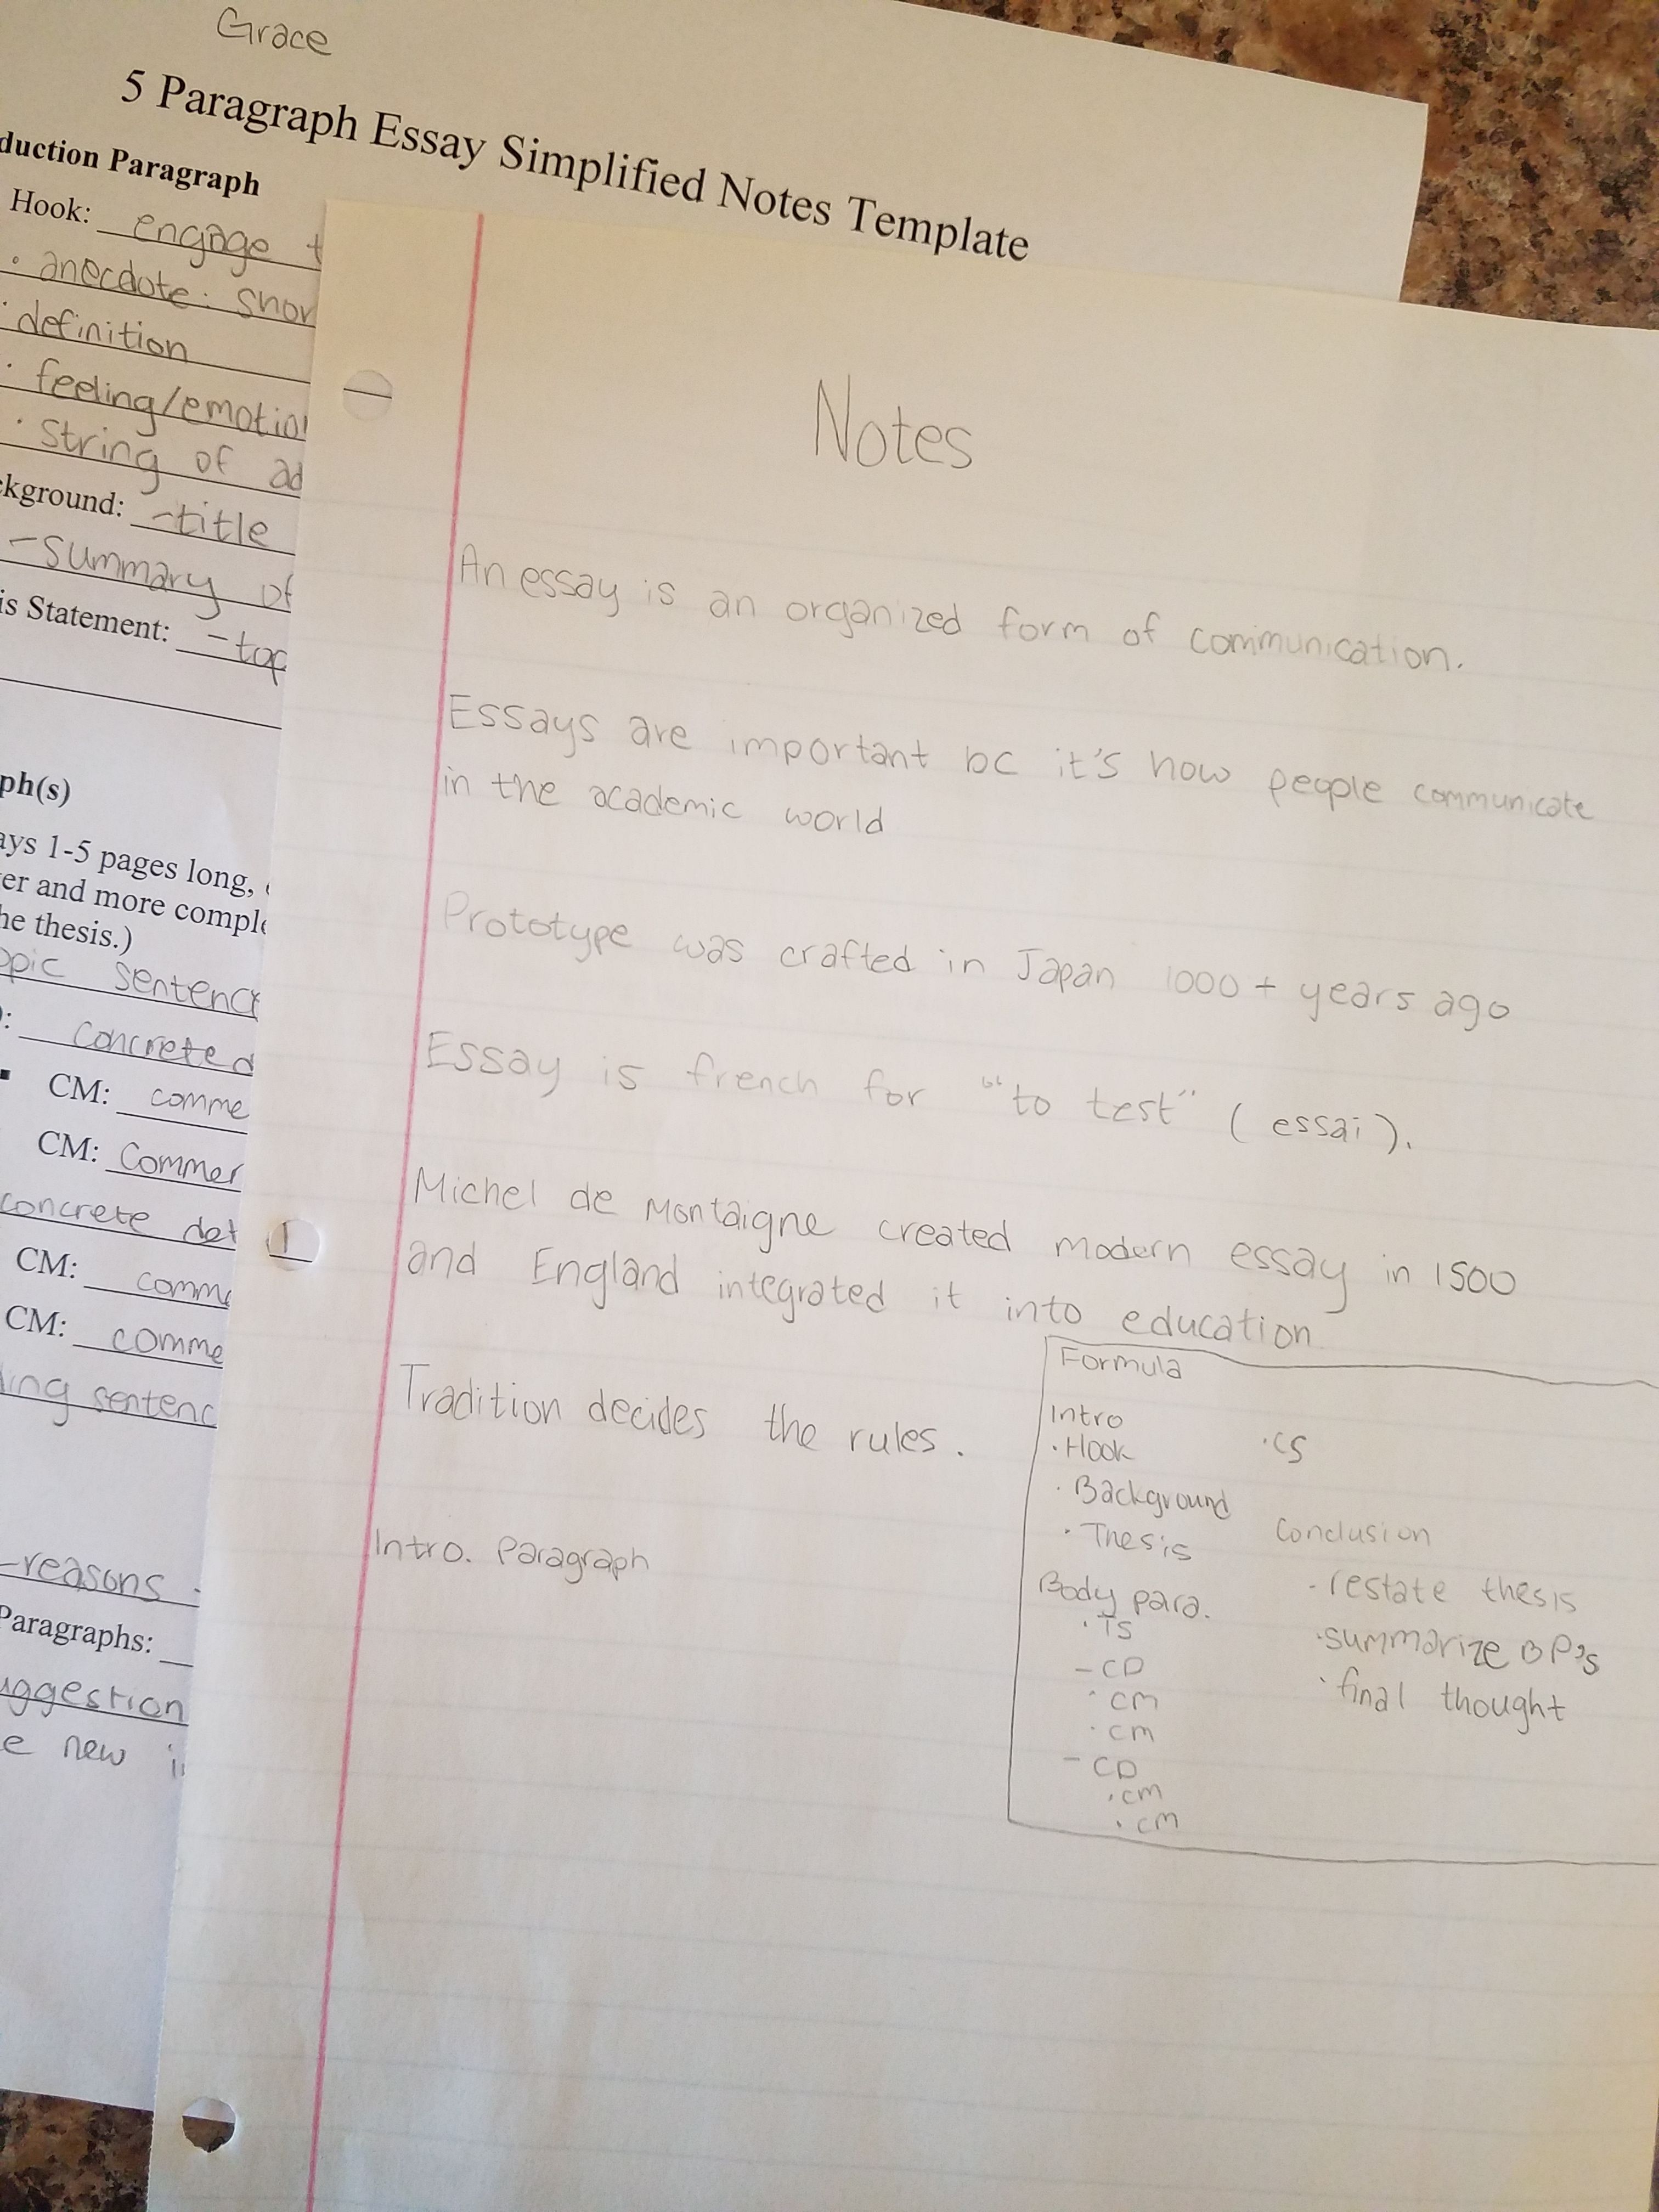 Grace
5 Paragraph Essay Simplified Notes Template
duction Paragraph
Hook: engage t
· anecdote: shor
· definition
· feeling/emotion
· string of ad
kground: -title
-summary of
is Statement: -top
ph(s)
ays 1-5 pages long,
er and more comple
he thesis.)
opic sentence
: concrete d
CM: comme
CM: Commen
concrete det
CM: comme
CM: comme
ling sentenc
-reasons -
Paragraphs:
uggestion
e new i
Notes
An essay is an organized form of communication.
Essays are important bc it's how people communicate
in the academic world
Prototype was crafted in Japan 1000+ years ago
Essay is french for "to test" (essai).
Michel de Montaigne created modern essay in 1500
and England integrated it into education
Tradition decides the rules.
Intro. Paragraph
Formula
Intro
· Hook
· Background
· Thesis
Body para.
· TS
- CD
· CM
· CM
- CD
· CM
· CM
· CS
Conclusion
- restate thesis
· summarize BP's
· final thought